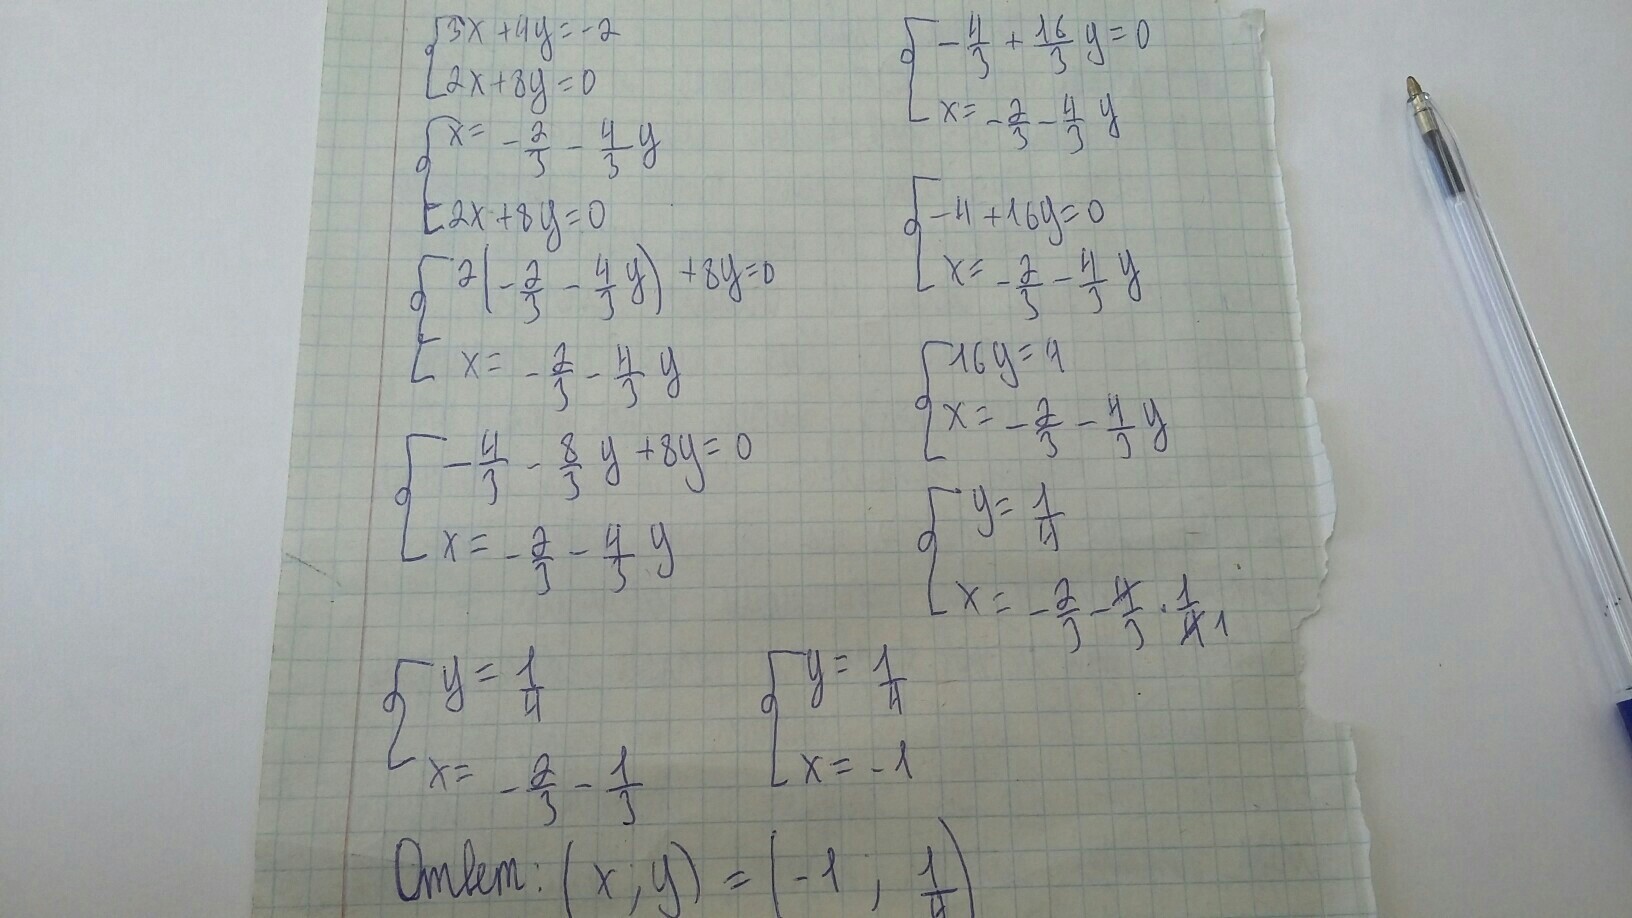 3x+4y=-2
2x+8y=0
x= -2/3 - 4/3 y
2x+8y=0
2(-2/3 - 4/3 y) +8y=0
x= -2/3 - 4/3 y
-4/3 - 8/3 y +8y=0
x= -2/3 - 4/3 y
-4/3 + 16/3 y=0
x= -2/3 - 4/3 y
-4+16y=0
x= -2/3 - 4/3 y
16y=4
x= -2/3 - 4/3 y
y= 1/4
x= -2/3 - 4/3 · 1/4 1
y= 1/4
x= -2/3 - 1/3
y= 1/4
x= -1
Ответ: (x;y) = (-1 ; 1/4)